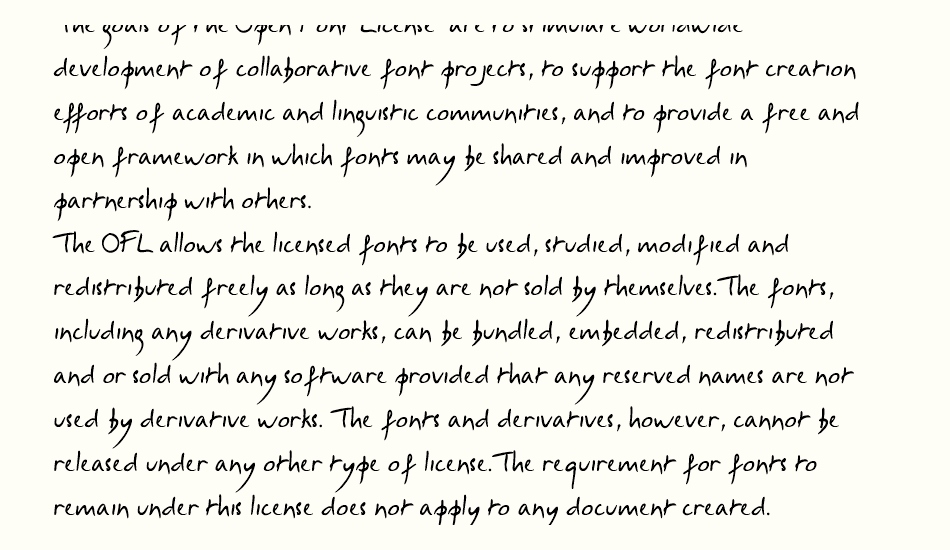 The goals of the Open Font License are to stimulate worldwide
development of collaborative font projects, to support the font creation
efforts of academic and linguistic communities, and to provide a free and
open framework in which fonts may be shared and improved in
partnership with others.
The OFL allows the licensed fonts to be used, studied, modified and
redistributed freely as long as they are not sold by themselves.The fonts,
including any derivative works, can be bundled, embedded, redistributed
and or sold with any software provided that any reserved names are not
used by derivative works. The fonts and derivatives, however, cannot be
released under any other type of license.The requirement for fonts to
remain under this license does not apply to any document created.